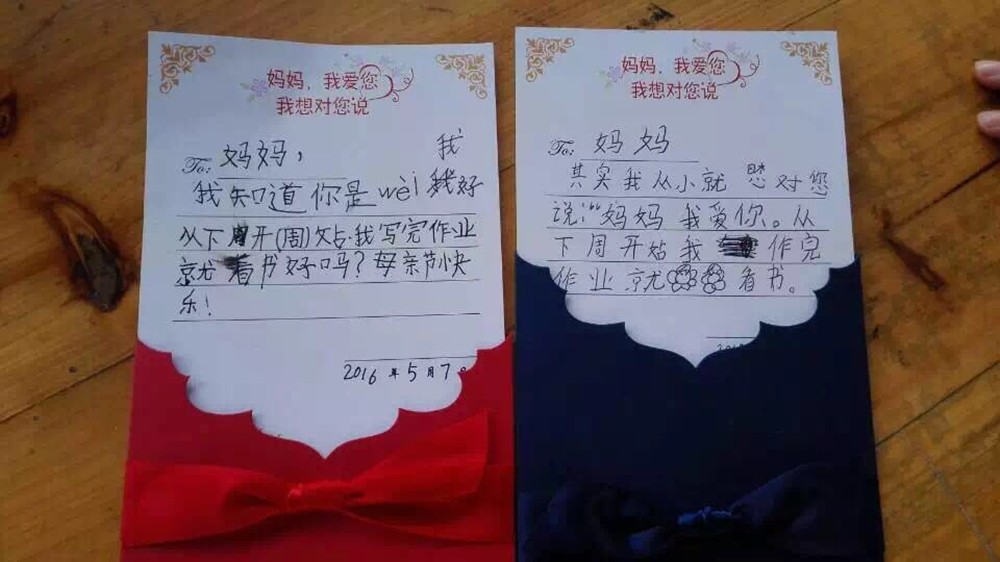 妈妈，我爱您
我想对您说
To: 妈妈，
我
我知道你是wèi我好
从下周开(周)始我写完作业
就看书好吗？母亲节快
乐！
2016年5月7
妈妈，我爱您
我想对您说
To: 妈妈
其实我从小就想对您
说:"妈妈我爱你。从
下周开始我作完
作业就看书。